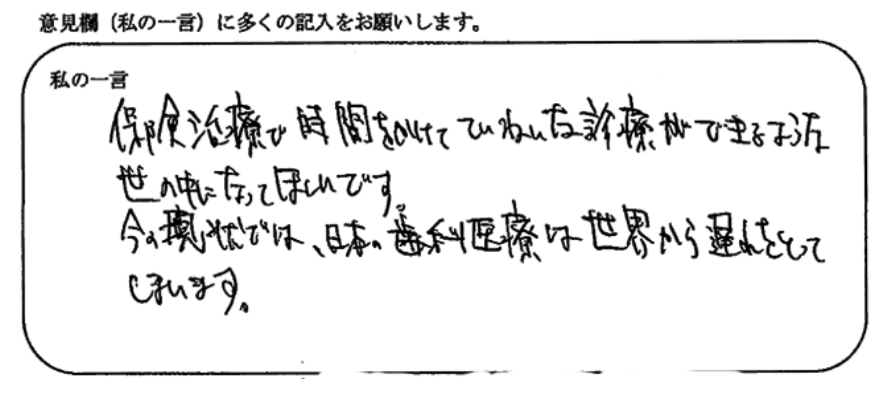 意見欄（私の一言）に多くの記入をお願いします。
私の一言
保険治療で時間をかけてていねいな診療ができるような
世の中になってほしいです。
今の現状では、日本の歯科医療は世界から遅れをとって
しまいます。